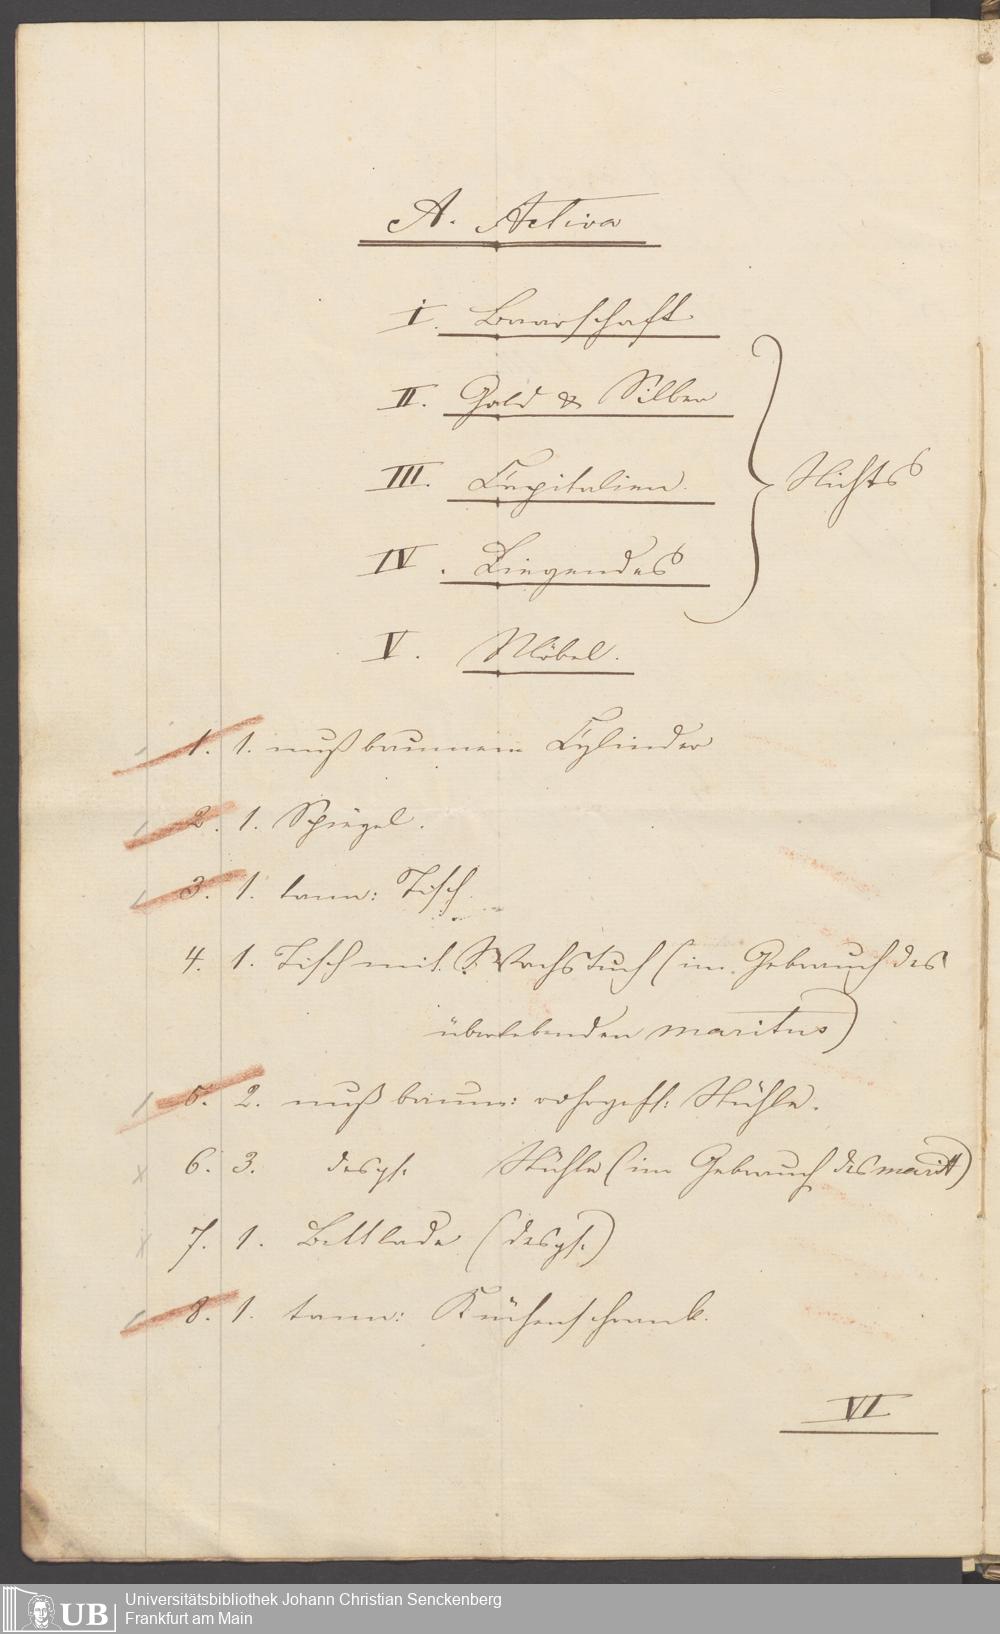 A. Activa
I. Baarschaft
II. Gold & Silber
III. Capitalien.
Nichts
IV. Liegendes
V. Möbel.
1. 1. nußbaumen Cylinder
2. 1. Spiegel.
3. 1. tann: Tisch
4. 1. Tisch mit Wachstuch (im Gebrauch des
überlebenden maritus)
5. 2. nußbaum: rohrgefl: Stühle.
6. 3. desgl. Stühle (im Gebrauch des marit)
7. 1. Bettlade (desgl.)
8. 1. tann: Küchenschrank.
VI
UB
Universitätsbibliothek Johann Christian Senckenberg
Frankfurt am Main